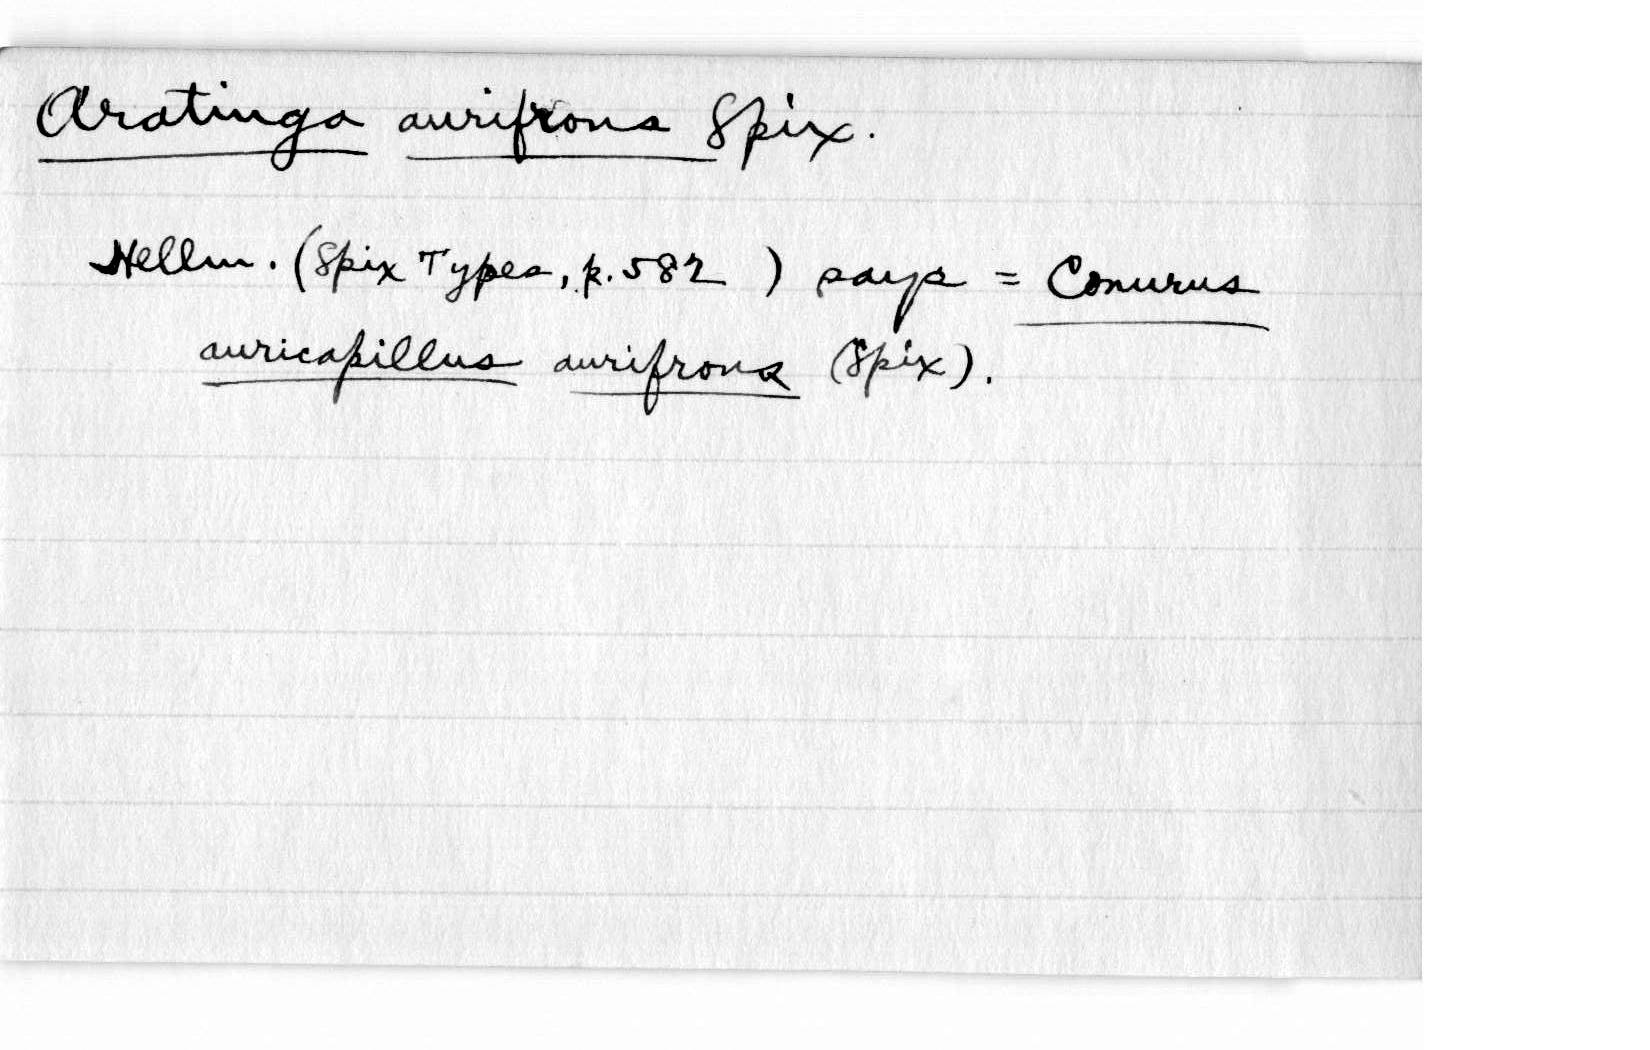 Aratinga aurifrons Spix.
Hellm. (Spix Types, p. 582 ) says = Conurus
auricapillus aurifrons (Spix).